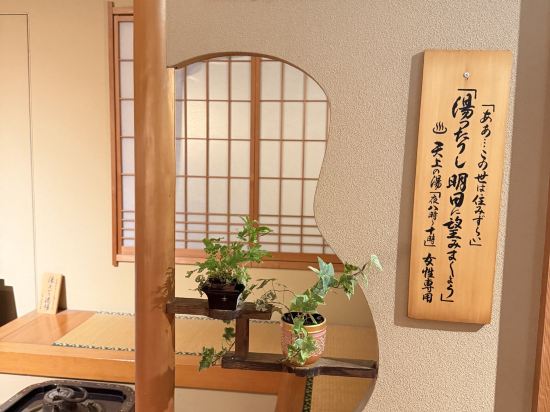 「ああ…この世は住みずらい」
「湯ったりし明日に望みましょう」
♨ 天上の湯「夜八時〜十時」女性専用